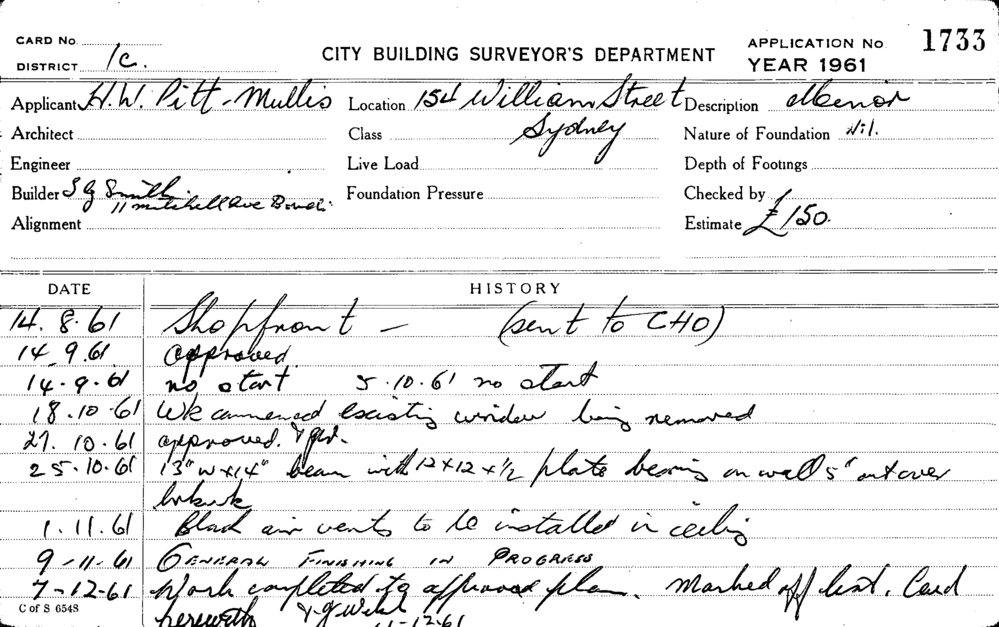 CARD No.
DISTRICT 1c.
CITY BUILDING SURVEYOR'S DEPARTMENT
APPLICATION No. 1733
YEAR 1961
Applicant H.W. Pitt-Mullis Location 154 William Street Description Minor
Architect Class Sydney Nature of Foundation Nil.
Engineer Live Load Depth of Footings
Builder S G Smith Foundation Pressure Checked by
11 Mitchell Ave Bondi.
Alignment Estimate £150.
DATE HISTORY
14. 8. 61 Shopfront - (sent to CHO)
14. 9. 61 approved
14. 9. 61 no start 5.10.61 no start
18.10.61 Wk commenced existing window being removed
27. 10. 61 approved.
25.10.61 13" w x 14" beam with 12 x 12 x 1/2 plate bearing on wall 5" out over
brkwk
1. 11. 61 air vents to be installed in ceiling
9-11-61 GENERAL FINISHING IN PROGRESS
7-12-61 Work completed to approved plan. Marked off list. Card
herewith
11-12-61
C of S 6548